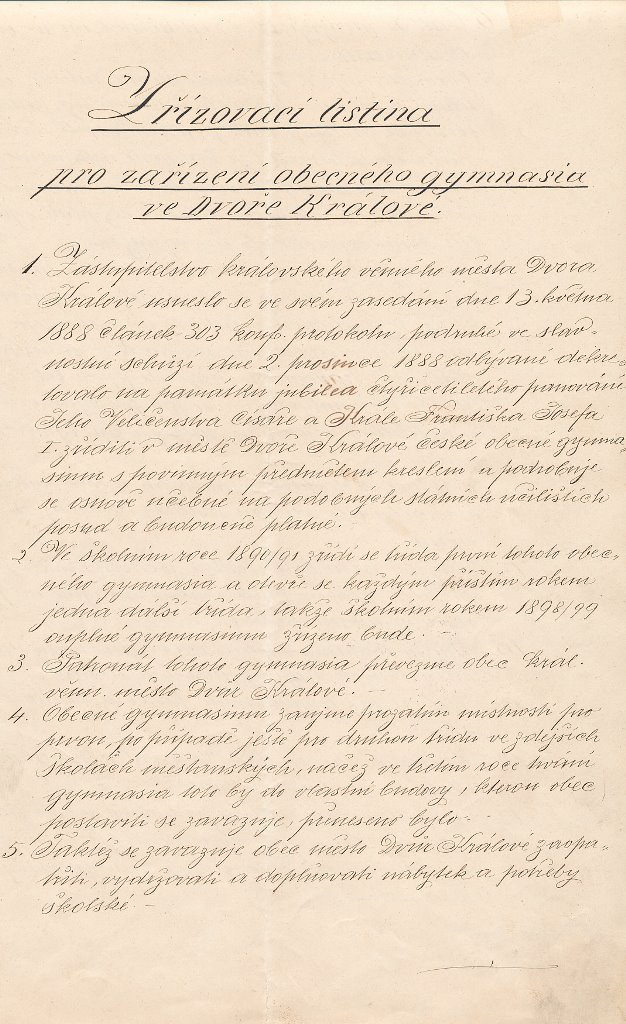 Zřizovací listina
pro zařízení obecného gymnasia
ve Dvoře Králové.
1. Zástupitelstvo královského věnného města Dvora
Králové usneslo se ve svém zasedání dne 13. května
1888 článek 303 konf. protokolu, podruhé ve slav-
nostní schůzi dne 2. prosince 1888 odbývané dekre-
tovalo na památku jubilea čtyřicetiletého panování
Jeho Veličenstva císaře a Krále Františka Josefa
I. zříditi v městě Dvoře Králové české obecné gymna-
sium s povinným předmětem kreslení a podrobuje
se osnově učebné na podobných státních učilištích
posud a budoucně platné.
2. Ve školním roce 1890/91 zřídí se třída první tohoto obec-
ného gymnasia a otevře se každým příštím rokem
jedna další třída, takže školním rokem 1898/99
úuplné gymnasium zřízeno bude.
3. Patronát tohoto gymnasia převezme obec král.
věnn. město Dvůr Králové.
4. Obecné gymnasium zaujme prozatím místnosti pro
prvou, po případě ještě pro druhou třídu ve zdejších
školách měšťanských, načež ve třetím roce trvání
gymnasia toto by do vlastní budovy, kterou obec
postaviti se zavazuje, přeneseno bylo.
5. Taktéž se zavazuje obec město Dvůr Králové zaopa-
třiti, vydržovati a doplňovati nábytek a potřeby
školské.